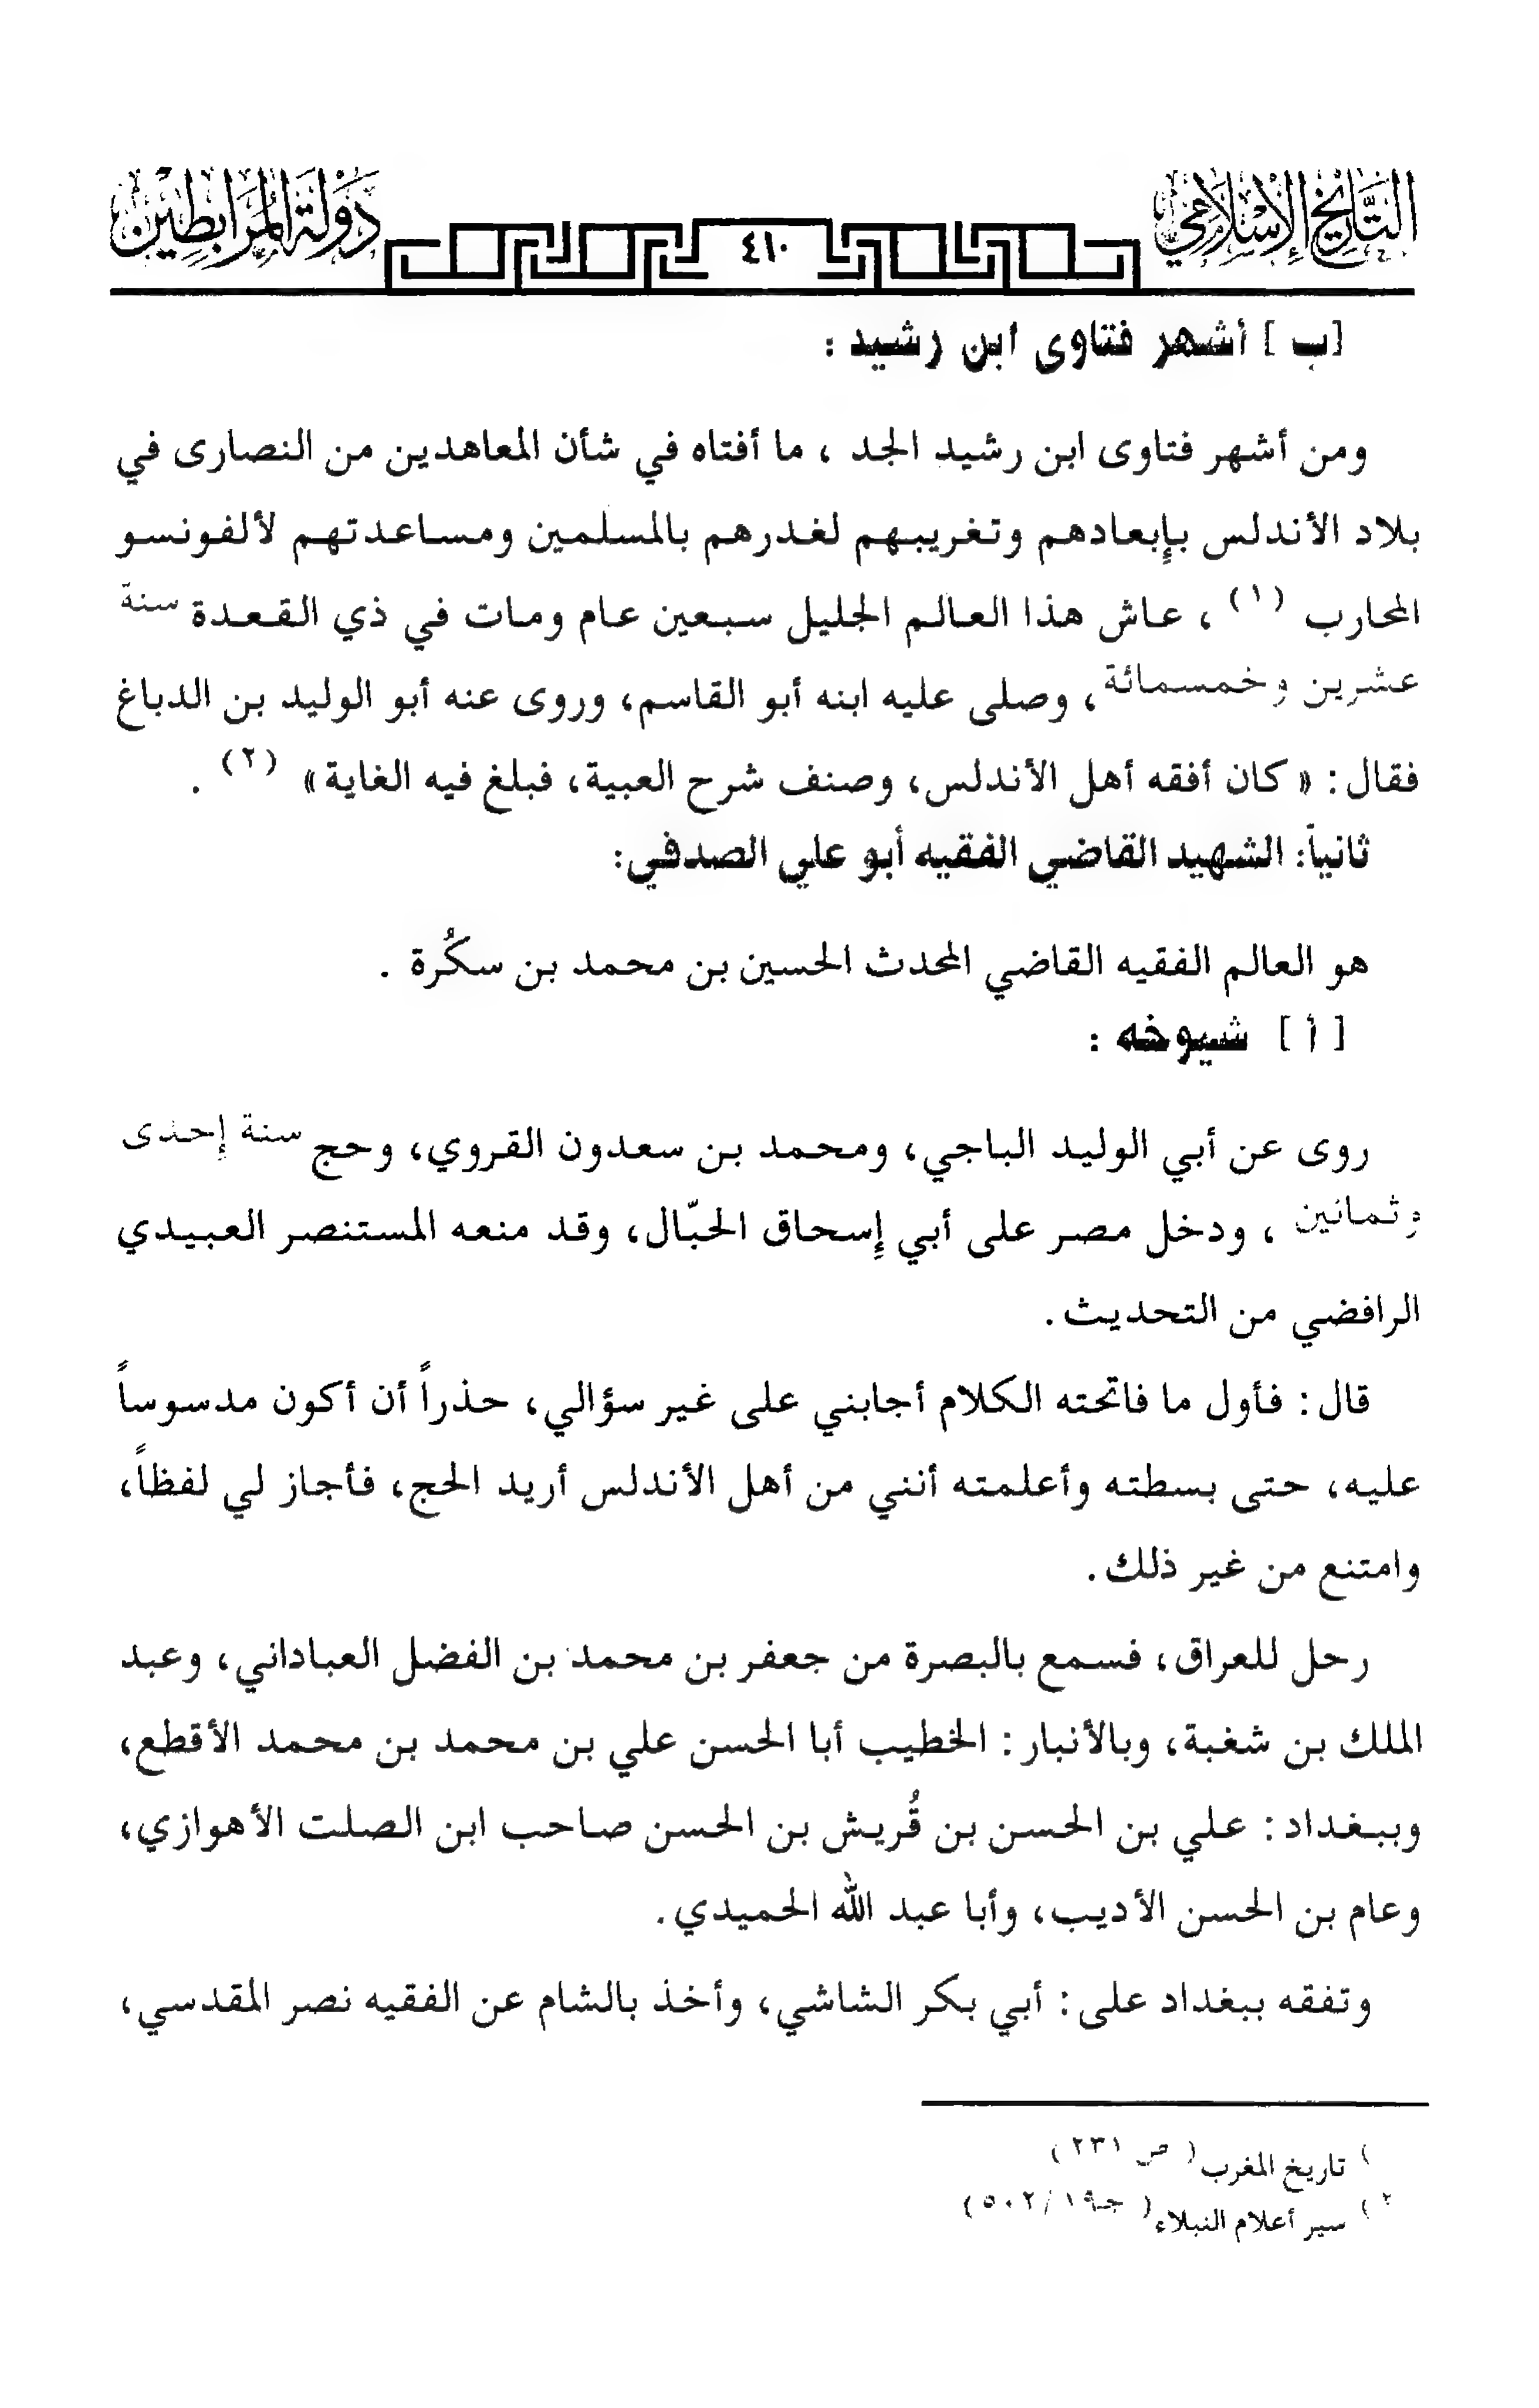 التاريخ الإسلامي
٤١٠
دولة المرابطين
[ب] أشهر فتاوى ابن رشيد :
ومن أشهر فتاوى ابن رشيد الجد ، ما أفتاه في شأن المعاهدين من النصارى في
بلاد الأندلس بإبعادهم وتغريبهم لغدرهم بالمسلمين ومساعدتهم لألفونسو
المحارب (١) ، عاش هذا العالم الجليل سبعين عام ومات في ذي القعدة سنة
عشرين وخمسمائة ، وصلى عليه ابنه أبو القاسم، وروى عنه أبو الوليد بن الدباغ
فقال : « كان أفقه أهل الأندلس، وصنف شرح العبية، فبلغ فيه الغاية » (٢) .
ثانياً: الشهيد القاضي الفقيه أبو علي الصدفي:
هو العالم الفقيه القاضي المحدث الحسين بن محمد بن سكُرة .
[ أ ] شيوخه :
روى عن أبي الوليد الباجي، ومحمد بن سعدون القروي، وحج سنة إحدى
وثمانين ، ودخل مصر على أبي إسحاق الحبّال، وقد منعه المستنصر العبيدي
الرافضي من التحديث.
قال : فأول ما فاتحته الكلام أجابني على غير سؤالي، حذراً أن أكون مدسوساً
عليه، حتى بسطته وأعلمته أنني من أهل الأندلس أريد الحج، فأجاز لي لفظاً،
وامتنع من غير ذلك.
رحل للعراق، فسمع بالبصرة من جعفر بن محمد بن الفضل العباداني، وعبد
الملك بن شغبة، وبالأنبار : الخطيب أبا الحسن علي بن محمد بن محمد الأقطع،
وببغداد : علي بن الحسن بن قُريش بن الحسن صاحب ابن الصلت الأهوازي،
وعام بن الحسن الأديب، وأبا عبد الله الحميدي.
وتفقه ببغداد على : أبي بكر الشاشي، وأخذ بالشام عن الفقيه نصر المقدسي،
) تاريخ المغرب ( ص ٢٣١ )
٢ ) سير أعلام النبلاء ( جـ١٩ / ٥٠٢ )